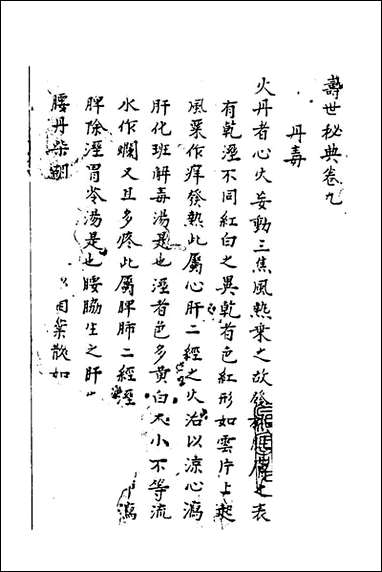 壽世秘典卷九
丹毒
火丹者心火妄動三焦風熱乘之故發於肌膚之表
有乾溼不同紅白之異乾者色紅形如雲片上起
風粟作痒發熱此屬心肝二經之火治以涼心瀉
肝化班解毒湯是也溼者色多黄白大小不等流
水作爛又且多疼此屬脾肺二經溼 瀉
脾除溼胃苓湯是也腰脇生之肝
因集散如
腰丹柴胡